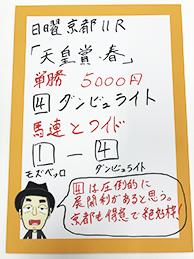 日曜京都11R
「天皇賞・春」
単勝 5000円
4 ダンビュライト
馬連とワイド
1－4
モズベッロ ダンビュライト
4は圧倒的に
展開利があると思う。
京都も得意で絶好枠